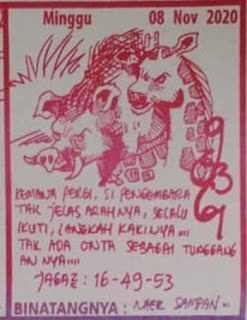 Minggu 08 Nov 2020
KEMANA PERGI, SI PENGEMBARA
TAK JELAS ARAHNYA, SELALU
IKUTI, LANGKAH KAKINYA....
TAK ADA ONTA SEBAGAI TUNGGANG
AN NYA....
JAGAZ : 16-49-53
BINATANGNYA : NAEK SAMPAN..